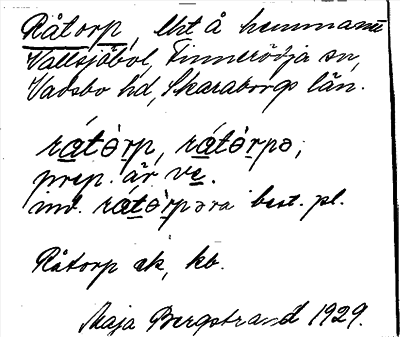 Råtorp, lht å hemmanet
Vallsjöbol, Finnerödja sn,
Vadsbo hd, Skaraborgs län.
rátòrp, rátòrpə,
prep. är ve.
inv. rátòrpəra best. pl.
Råtorp ek, kb.
Maja Bergstrand 1929.